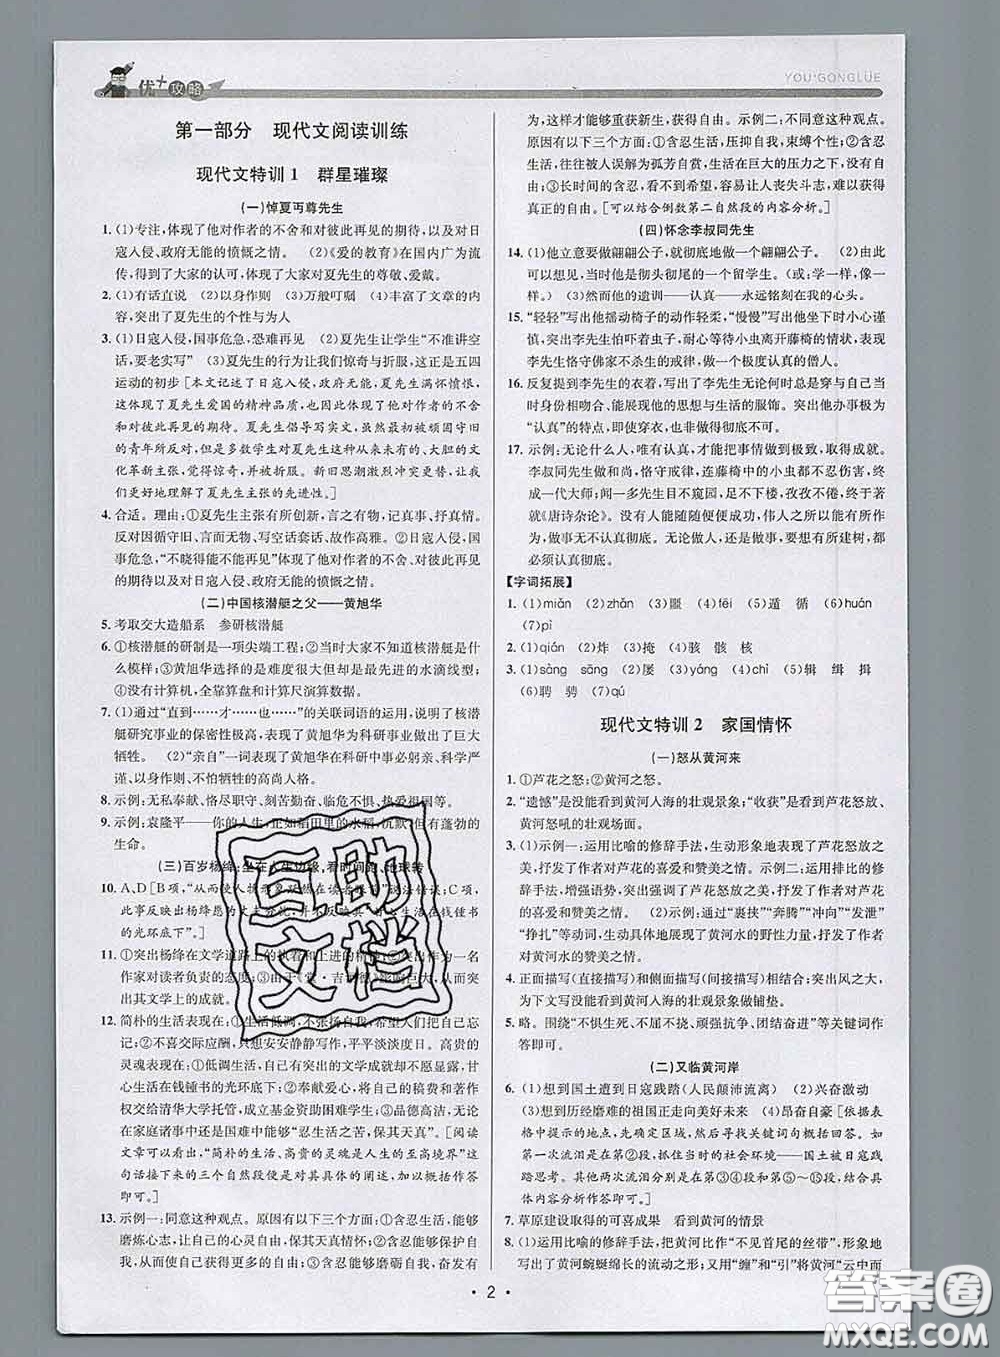 优+攻略
YOU·GONGLUE
第一部分 现代文阅读训练
现代文特训1 群星璀璨
(一)悼夏丏尊先生
1. (1)专注,体现了他对作者的不舍和对彼此再见的期待,以及对日
寇入侵、政府无能的愤慨之情。 (2)《爱的教育》在国内广为流
传,得到了大家的认可,体现了大家对夏先生的尊敬、爱戴。
2. (1)有话直说 (2)以身作则 (3)万般叮嘱 (4)丰富了文章的内
容,突出了夏先生的个性与为人
3. (1)日寇入侵、国事危急,形势艰难 (2)夏先生让学生“不准讲空
话,要老实写” (3)夏先生的行为让我们惊奇与折服,这正是五四
运动的初步[本文记述了日寇入侵,政府无能,夏先生满怀愤恨,
体现了夏先生爱国的精神品质,也体现了他对他对作者的不舍
和对彼此再见的期待。夏先生倡导写实文,突破了那些顽固守旧
的青年所反对,但是多数学生对夏先生主张的从来未有的、大胆的文
化革新主张,觉得惊奇,并被折服。新旧思潮激烈冲突更替,让我
们更好地理解了夏先生主张的先进性。]
4. 合适。理由:①夏先生主张有所创新,言之有物,记真事、抒真情。
反对因循守旧、言而无物、写空话套话、故作高雅。②日寇入侵、国
事危急,“不晓得能不能再见”体现了他对作者的不舍和对彼此再见
的期待以及对日寇入侵、政府无能的愤慨之情。
(二)中国核潜艇之父——黄旭华
5. 考取交大造船系 参研核潜艇
6. ①核潜艇的研制是一项尖端工程;②当时大家不知道核潜艇是什
么模样;③黄旭华选择的是难度很大但却最先进的水滴线型;
④没有计算机,全靠算盘和计算尺演算数据。
7. (1)通过“直到……才……也”的关联词语的运用,说明了核潜
艇研究事业的保密性极高,表现了黄旭华为科研事业做出了巨大
牺牲。 (2)“亲自”一词表现了黄旭华在科研中事必躬亲、科学严
谨、以身作则、不怕牺牲的高尚人格。
8. 示例:无私奉献、恪尽职守、刻苦勤奋、临危不惧、热爱祖国等。
9. 示例:袁隆平——你的人生,正如稻田里的水稻,沉默,但有蓬勃的
生命。
(三)百岁杨绛:坐在人生边缘,看时间跑、地球转
10. A、D[B项,“从而使人物形象跃然在读者眼前”理解错误;C项,
此事反映出杨绛愿为丈夫分忧,并不反映其“甘心生活在钱锺书
的光环底下”。]
11. ①突出杨绛在文学道路上的执着和上进的精神;②突出作为作
家对读者负责的态度;③由于《堂·吉诃德》影响巨大,从而突出
其文学上的成就。
12. 简朴的生活表现在:①生活低调,不张扬自我,希望人们把她忘记;
②不喜交际应酬,只想安安静静写作,平平淡淡度日。高贵的
灵魂表现在:①低调生活,自己有突出的文学成就却不愿显露,甘
心生活在钱锺书的光环底下;②奉献爱心,将自己的稿费和著作
权交给清华大学托管,成立基金资助困难学生;③品德高洁,无论
在家庭诸事中还是国难中能够“忍生活之苦,保其天真”。[阅读
文章可以看出“简朴的生活、高贵的灵魂是人生的至高境界”这
句话接下来的三个自然段便是对其具体的阐述,加以概括作答
即可。]
13. 示例一:同意这种观点。原因有以下三个方面:①含忍生活,能够
磨炼心志,让自己的心灵自由,保其天真;②含忍生活能够保护自
我,为此获得更多的自由;③含忍生活能够磨砺自我,奋发有
为,这样才能够重获新生,获得自由。示例二:不同意这种观点。
原因有以下三个方面:①含忍生活,会委屈自己的心灵;②含忍
生活,往往被人误解为孤芳自赏,生活在巨大的压力中,失去自
由;③长时间的含忍,看不到希望,容易让人丧失斗志,难以获得
真正的自由。[可以结合倒数第二自然段的内容分析。]
(四)怀念李叔同先生
14. (1)他立意要做翩翩公子,就彻底地做一个翩翩公子。 (2)由此
可以想见,当时他是彻头彻尾的一个留学生。(或:学一样,像一
样。) (3)然而他的遗训——认真——永远铭刻在我的心头。
15. “轻轻”写出他摇动椅子的动作轻柔,“慢慢”写出他坐下时小心谨
慎,突出李先生怕吓着虫子,耐心等待小虫离开藤椅的情状,表现
李先生恪守佛家不杀生的戒律,做一个极度认真的僧人。
16. 反复提到李先生的衣着,写出了李先生无论何时总是穿与自己当
时身份相吻合、能展现他的思想与生活的服饰。突出他办事极为
“认真”的特点,即使穿衣,也不肯有半分虚假,务求彻底不可。
17. 示例:无论什么人,唯有认真,才能把事情做到极致,取得成就。
李叔同先生做和尚,恪守戒律,连藤椅中的小虫都不忍伤害,终
成一代大师;闻一多先生目不窥园,足不出户,孜孜不倦,终于著
就《唐诗杂论》。没有人能随随便便成功,伟人之所以能有所作
为,做事无不认真彻底。无论做人,还是做事,要想有所建树,都
必须认真彻底。
【字词拓展】
1. (1)miǎn (2)zhǎn (3)噩 (4)tēi (5)遁 循 (6)huán
(7)pì
2. (1)qián (2)炸 (3)掩 (4)骇 骸 核
3. (1)sàng sāng (2)屡 (3)yáng (4)chǐ (5)缉 缉 揖
(6)聘 骋 (7)qú
现代文特训2 家国情怀
(一)怒从黄河来
1. ①芦花之怒;②黄河之怒。
2. “遗憾”是没能看到黄河入海的壮观景象;“收获”是看到芦花怒放、
黄河怒吼的壮观场面。
3. (1)示例一:运用比喻的修辞手法,生动形象地表现了芦花怒放之
美,抒发了作者对芦花的喜爱和赞美之情。示例二:运用排比的修
辞手法,增强语势,突出强调了芦花怒放之美,抒发了作者对芦花
的喜爱和赞美之情。 (2)示例:通过“裹挟”“奔腾”“冲向”“发泄”
“挣扎”等动词,生动具体地展现了黄河水的野性力量,抒发了作者
对黄河水的赞美之情。
4. 正面描写(直接描写)和侧面描写(间接描写)相结合;突出风之大,
为下文写没能看到黄河入海的壮观景象做铺垫。
5. 略。围绕“不惧生死、不屈不挠、顽强抗争、团结奋进”等关键词作
答即可。
(二)又临黄河岸
6. (1)想到国土遭到日寇践踏(人民颠沛流离) (2)兴奋激动
(3)想到历经磨难的祖国正走向美好未来 (4)昂奋自豪[依据
“流泪”这一线索,先确定区域,然后寻找关键词句概括作答即可。
第一次流泪应在第②段,当时的社会环境——国土遭日寇践踏;
而其他两次流泪分别应在第③④段和第⑤~⑮段,结合
具体内容分析作答即可。]
7. 草原建设取得的可喜成果 看到黄河的情景
8. (1)运用比喻的修辞手法,把黄河比作“不见首尾的丝带”,形象地
写出了黄河蜿蜒绵长的流动之美。又用“缠”和“引”将黄河“云中而
· 2 ·
百助文档
答案圈
MXQE.COM